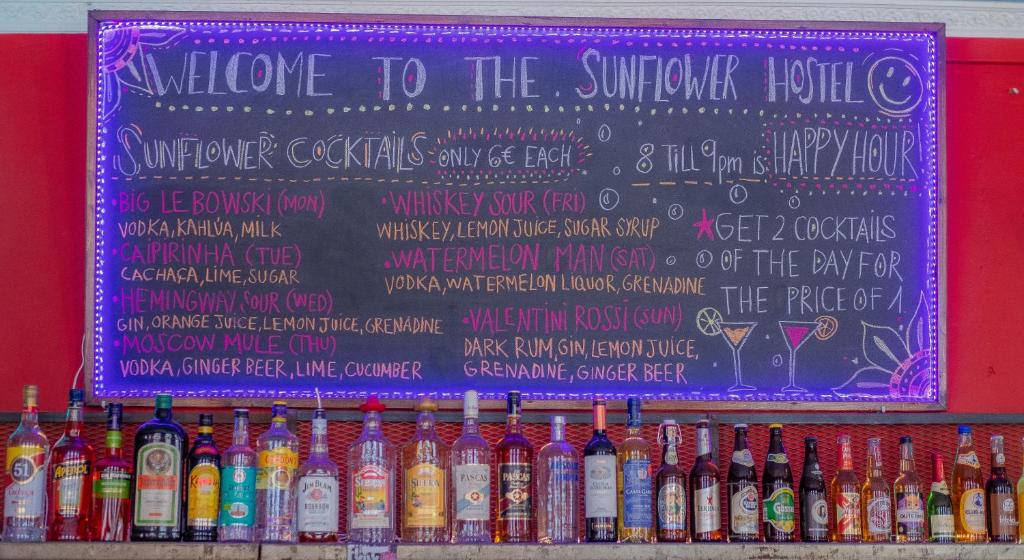 WELCOME TO THE SUNFLOWER HOSTEL
SUNFLOWER COCKTAILS ONLY 6€ EACH
8 TILL 9pm is HAPPY HOUR
•BIG LEBOWSKI (MON)
VODKA, KAHLÚA, MILK
•CAIPIRINHA (TUE)
CACHAÇA, LIME, SUGAR
•HEMINGWAY SOUR (WED)
GIN, ORANGE JUICE, LEMON JUICE, GRENADINE
•MOSCOW MULE (THU)
VODKA, GINGER BEER, LIME, CUCUMBER
•WHISKEY SOUR (FRI)
WHISKEY, LEMON JUICE, SUGAR SYRUP
•WATERMELON MAN (SAT)
VODKA, WATERMELON LIQUOR, GRENADINE
•VALENTINI ROSSI (SUN)
DARK RUM, GIN, LEMON JUICE,
GRENADINE, GINGER BEER
GET 2 COCKTAILS
OF THE DAY FOR
THE PRICE OF 1
51
APEROL
JIM BEAM
BOURBON
SIERRA
SIERRA
PASCAS
PASCAS
ABSOLUT